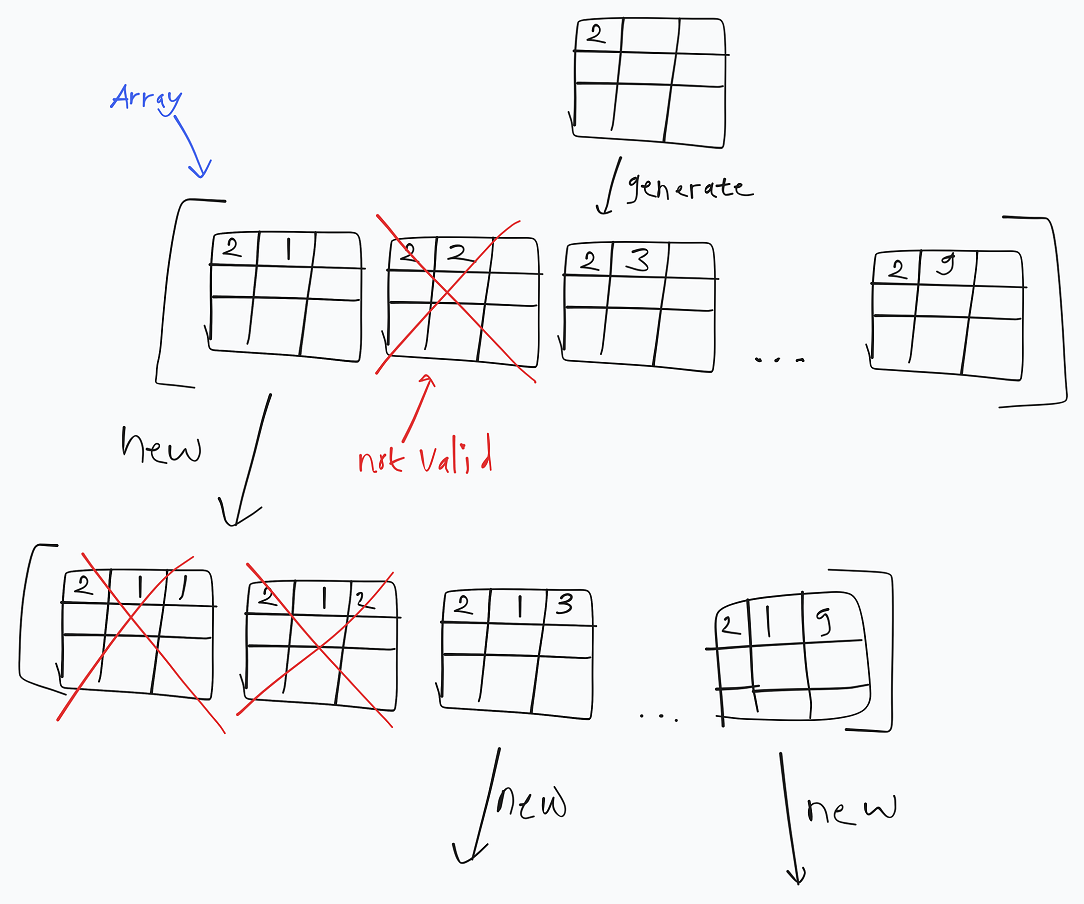 2
Array
generate
2 1
2 2
2 3
2 9
...
new
not valid
2 1 1
2 1 2
2 1 3
2 1 9
...
new
new